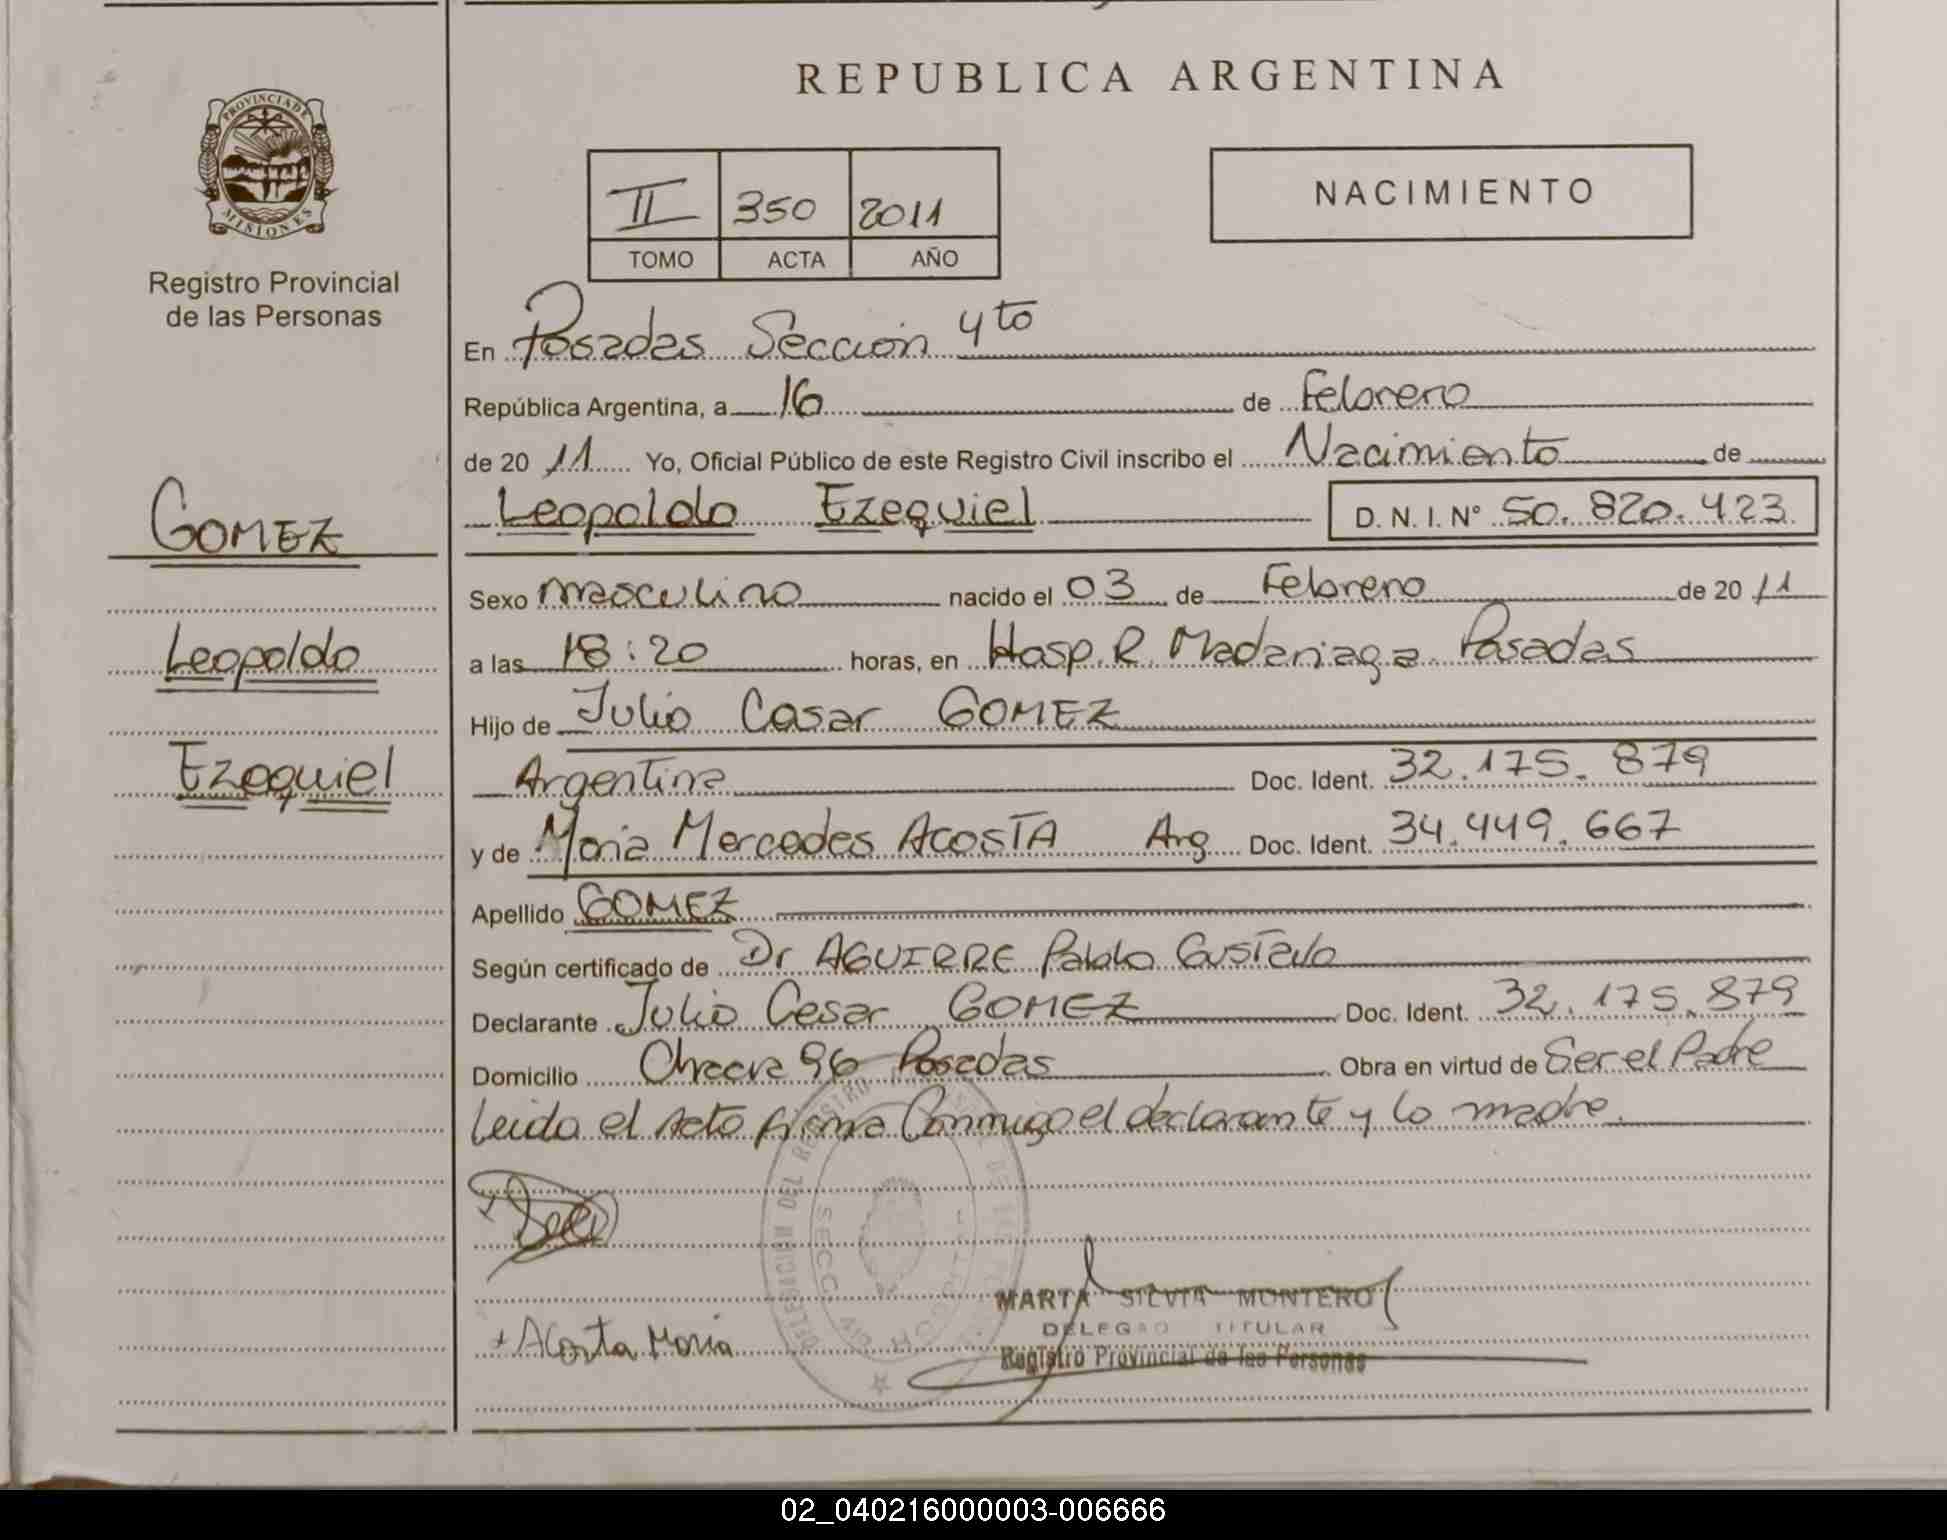 REPUBLICA ARGENTINA
PROVINCIA DE
MISIONES
Registro Provincial
de las Personas
II 350 2011
TOMO ACTA AÑO
NACIMIENTO
En Posadas Sección 4to
República Argentina, a 16 de Febrero
de 20 11 Yo, Oficial Público de este Registro Civil inscribo el Nacimiento de
Leopoldo Ezequiel D. N. I. N° 50.820.423
GOMEZ
Leopoldo
Ezequiel
Sexo masculino nacido el 03 de Febrero de 20 11
a las 18:20 horas, en Hosp. R. Madariaga Posadas
Hijo de Julio Cesar GOMEZ
Argentina Doc. Ident. 32.175.879
y de Maria Mercedes ACOSTA Arg Doc. Ident. 34.449.667
Apellido GOMEZ
Según certificado de Dr AGUIRRE Pablo Gustavo
Declarante Julio Cesar GOMEZ Doc. Ident. 32.175.879
Domicilio Chacra 96 Posadas Obra en virtud de Ser el Padre
Leida el Acta firma Conmigo el declarante y la madre.
DELEGACION DEL REGISTRO
SECC.
MARTA SILVIA MONTERO
DELEGAD TITULAR
Registro Provincial de las Personas
+ Acosta Maria
02_040216000003-006666